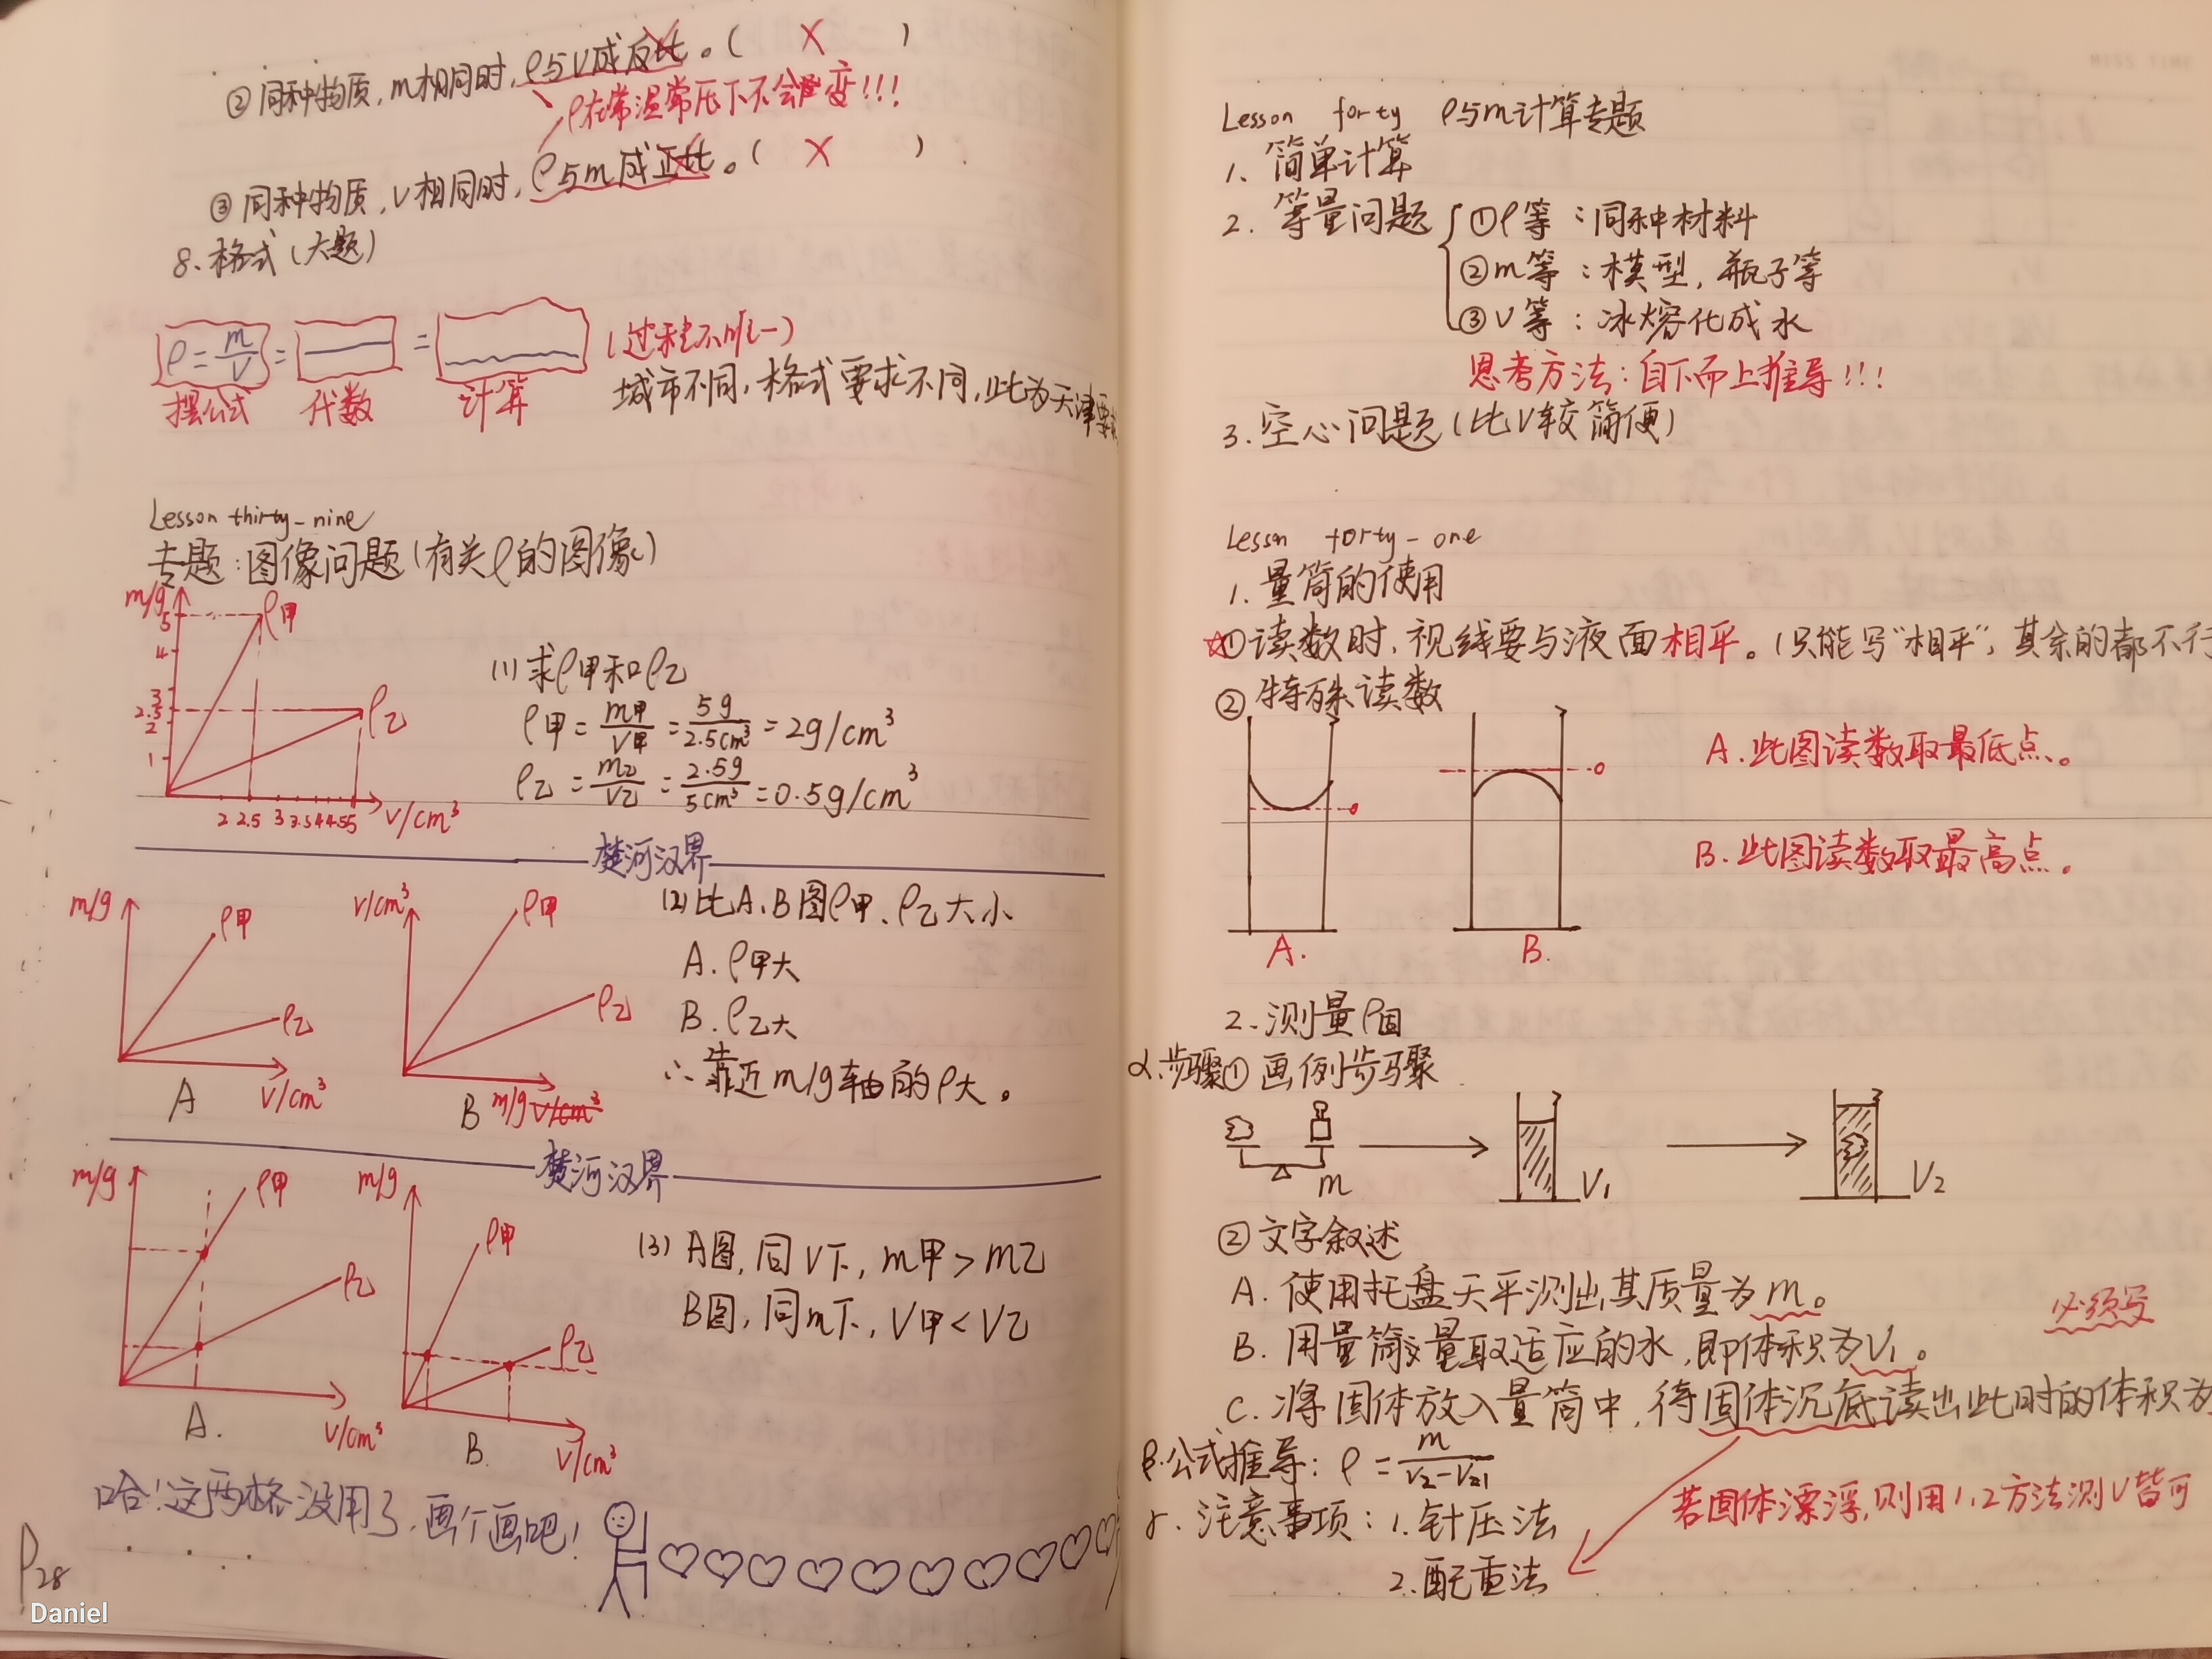 ②同种物质,m相同时,ρ与V成反比。( × )
ρ在常温常压下不会改变!!!
③同种物质,V相同时,ρ与m成正比。( × )
8.格式(大题)
ρ=m/V = =
摆公式 代数 计算
城市不同,格式要求不同,此为天津要
Lesson thirty-nine
专题:图像问题(有关ρ的图像)
m/g
5
4
3
2.5
2
1
ρ甲
ρ乙
2 2.5 3 3.5 4 4.5 5 V/cm³
(1)求ρ甲和ρ乙
ρ甲=m甲/V甲=5g/2.5cm³=2g/cm³
ρ乙=m乙/V乙=2.5g/5cm³=0.5g/cm³
楚河汉界
m/g ρ甲 ρ乙 V/cm³ A
V/cm³ ρ甲 ρ乙 m/g V/cm³ B
(2)比A、B图ρ甲、ρ乙大小
A.ρ甲大
B.ρ乙大
∴靠近m/g轴的ρ大。
楚河汉界
m/g ρ甲 ρ乙 V/cm³ A.
m/g ρ甲 ρ乙 V/cm³ B.
(3)A图,同V下,m甲>m乙
B图,同m下,V甲<V乙
哈!这两格没用了,画个画吧!
P28
Daniel
Lesson forty ρ与m计算专题
1、简单计算
2、等量问题
①ρ等:同种材料
②m等:模型,瓶子等
③V等:冰熔化成水
思考方法:自下而上推导!!!
3.空心问题(比V较简便)
Lessn forty-one
1.量筒的使用
☆①读数时,视线要与液面相平。(只能写"相平",其余的都不行
②特殊读数
A. B.
A.此图读数取最低点。
B.此图读数取最高点。
2.测量ρ固
α.步骤①画例步骤
m V₁ V₂
②文字叙述
A.使用托盘天平测出其质量为m。
必须写
B.用量筒量取适应的水,即体积为V₁。
C.将固体放入量筒中,待固体沉底读出此时的体积为
β.公式推导:ρ=m/V₂-V₁
γ.注意事项:1.针压法
2.配重法
若固体漂浮,则用1,2方法测V皆可